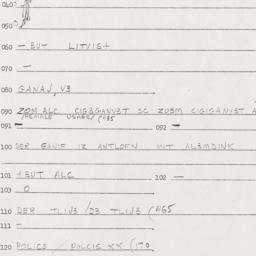 040?
050
060 — BUT LITVIS+
070 —
080 GANAJ, V3
090 ZOM ALC CIG3GANV3T SC ZU3M CIGIGANY3T A
/FEMALE USAGE/ (#85
091 — 092 —
100 DER GANIF IZ ANTLOFN MIT AL3MDINK
101 1BUT ALC 102 —
103 0
110 DER TLIJ3/D3 TLIJ3 (#65
111 —
120 POLICS / POLCIS XX (170